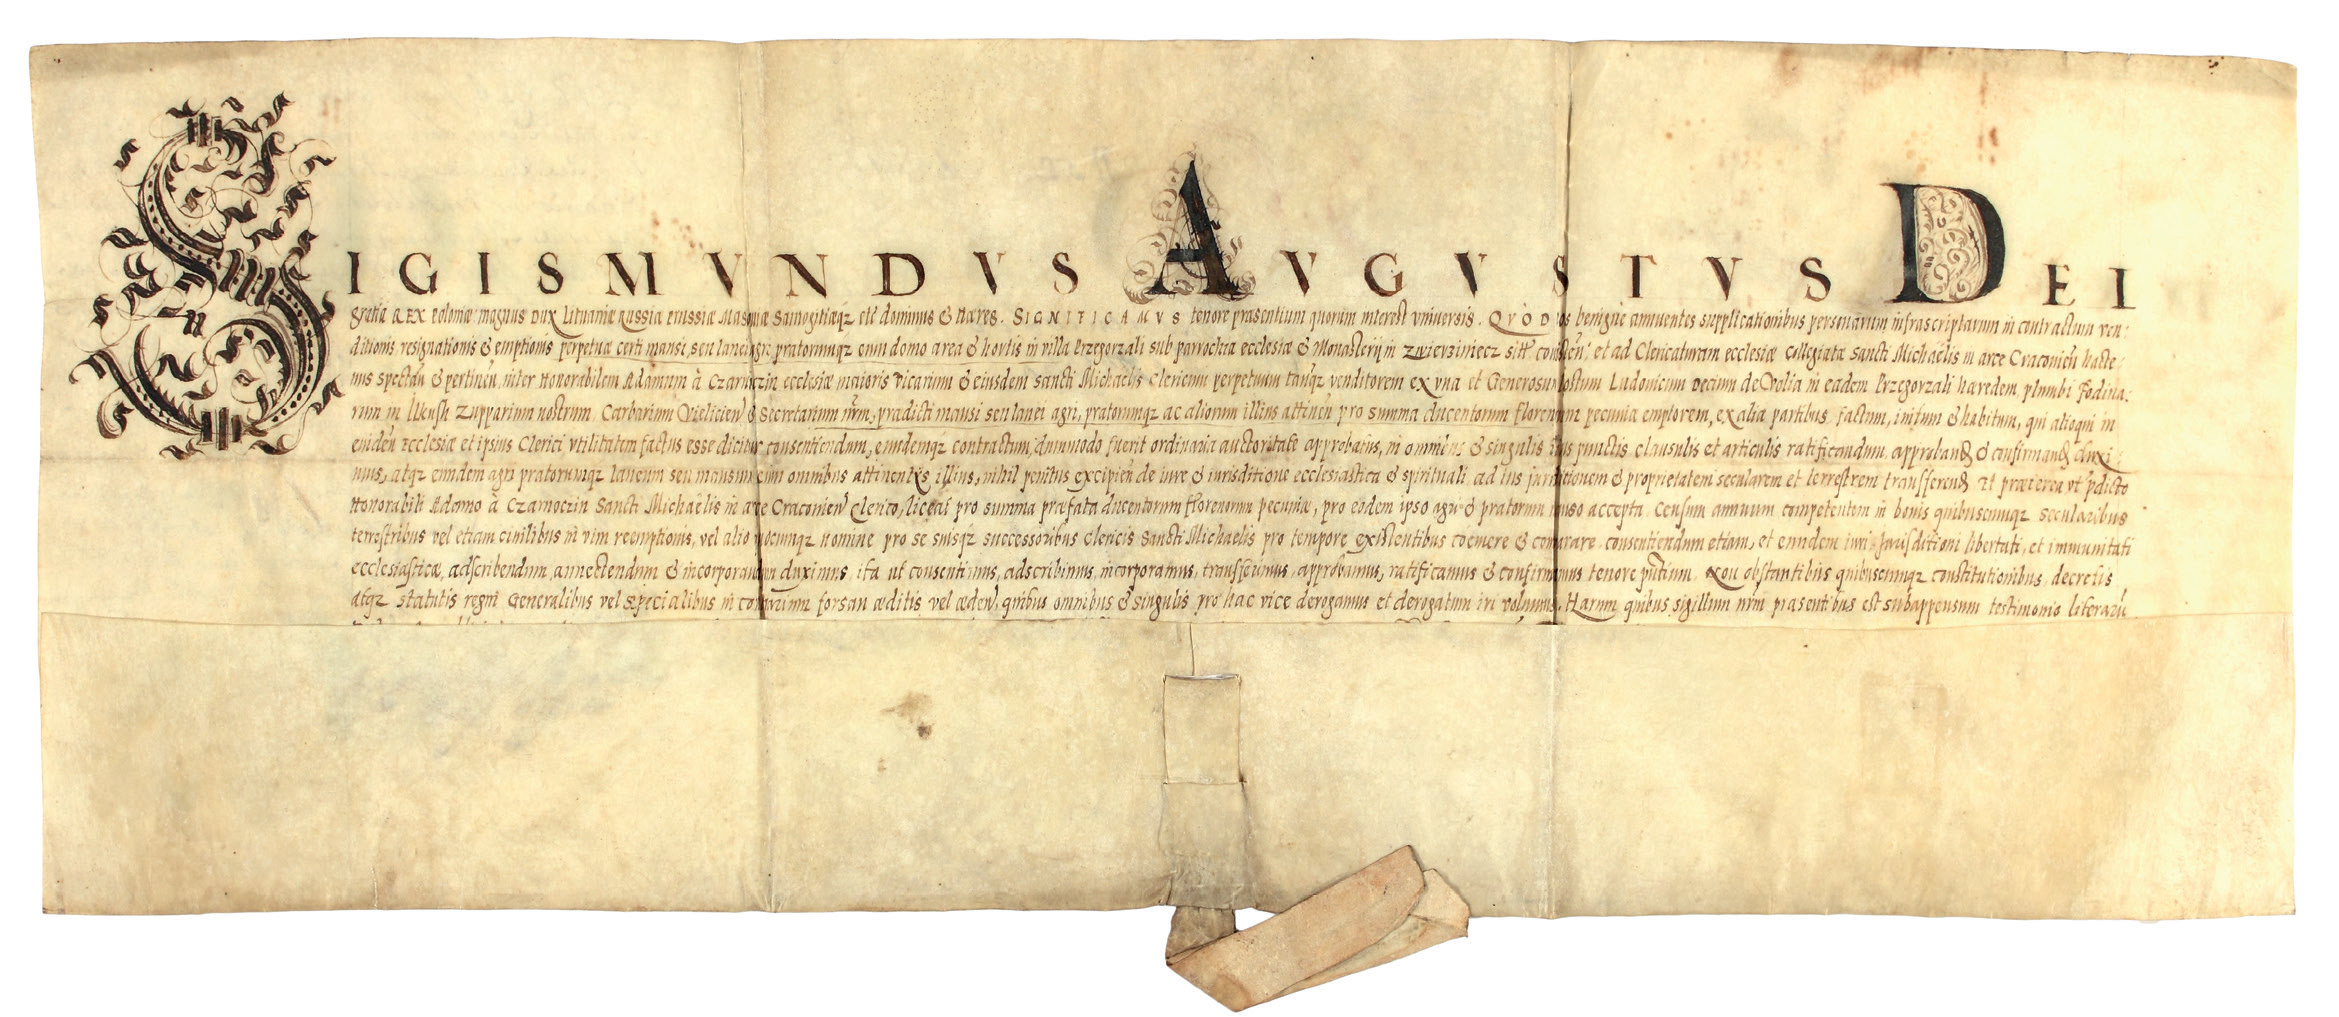 SIGISMVNDVS AVGVSTVS DEI
gratia REX Poloniæ magnus Dux Lituaniæ Russiæ Prussiæ Masouiæ Samogitiæqz etc dominus & Hæres. SIGNIFICAMVS tenore præsentium quorum interest vniuersis. QVOD nos benigne annuentes supplicationibus personarum infrascriptarum in contractum ven:
ditionis resignationis & emptionis perpetuæ certi mansi, seu lanei agri, pratorumqz cum domo area & hortis in villa Przegorzali sub parrochia ecclesiæ & Monasterij in Zwierziniecz sitt consisten̄, et ad Clericaturam ecclesiæ Collegiatæ Sancti Michaëlis in arce Cracouien̄ hacte:
nus spectan̄ & pertinen̄, inter Honorabilem Adamum à Czarnoczin ecclesiæ maioris Vicarium & eiusdem Sancti Michaëlis Clericum perpetuum tanqz venditorem ex vna et Generosum nostrum Ludouicum Decium de Volia in eadem Przegorzali hæredem, plumbi Fodina:
rum in Ilkusch Zupparium nostrum Carbarium Vielicien̄ & Secretarium nr̄m, prædicti mansi seu lanei agri, pratorumqz ac aliorum illius attinen̄ pro summa ducentorum florenorum pecuniæ emptorem, ex alia partibus, factum, initum & habitum, qui alioqui in
euiden̄ Ecclesiæ et ipsius Clerici vtilitatem factus esse dicitur consentiendum, eundemqz contractum, dummodo fuerit ordinaria auctoritate approbatus, in omnibus & singulis suis punctis clausulis et articulis ratificandum, approband & confirmand duxi:
mus, atqz eundem agri pratorumqz laneum seu mansum cum omnibus attinentijs illius, nihil penitus excipien̄ de iure & iurisditione ecclesiastica & spirituali ad ius iurisditionem & proprietatem secularem et terrestrem transferend Et præterea vt p̄dicto
Honorabili Adamo à Czarnoczin Sancti Michaëlis in arce Cracouien̄ Clerico, liceat pro summa præfata ducentorum Florenorum pecuniæ, pro eodem ipso agri & pratorum manso accepta censum annuum competentem in bonis quibuscunqz secularibus
terrestribus vel etiam ciuilibus in vim reemptionis, vel alio quocunqz nomine pro se suisqz successoribus Clericis Sancti Michaelis pro tempore existentibus coemere & comparare consentiendum etiam, et eundem iuri Jurisditioni libertati, et immunitati
ecclesiasticæ, adscribendum annectendum & incorporandum duximus, ita ut consentimus, adscribimus, incorporamus, transferimus, approbamus, ratificamus & confirmamus tenore pn̄tium. Non obstantibus quibuscunqz constitutionibus, decretis
atqz statutis regni Generalibus vel Specialibus in contrarium forsan æditis vel æden̄, quibus omnibus & singulis pro hac vice derogamus et derogatum iri volumus. Harum quibus sigillum nr̄m præsentibus est subappensum testimonio literarū